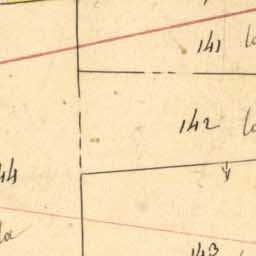 141
142
44
la
143